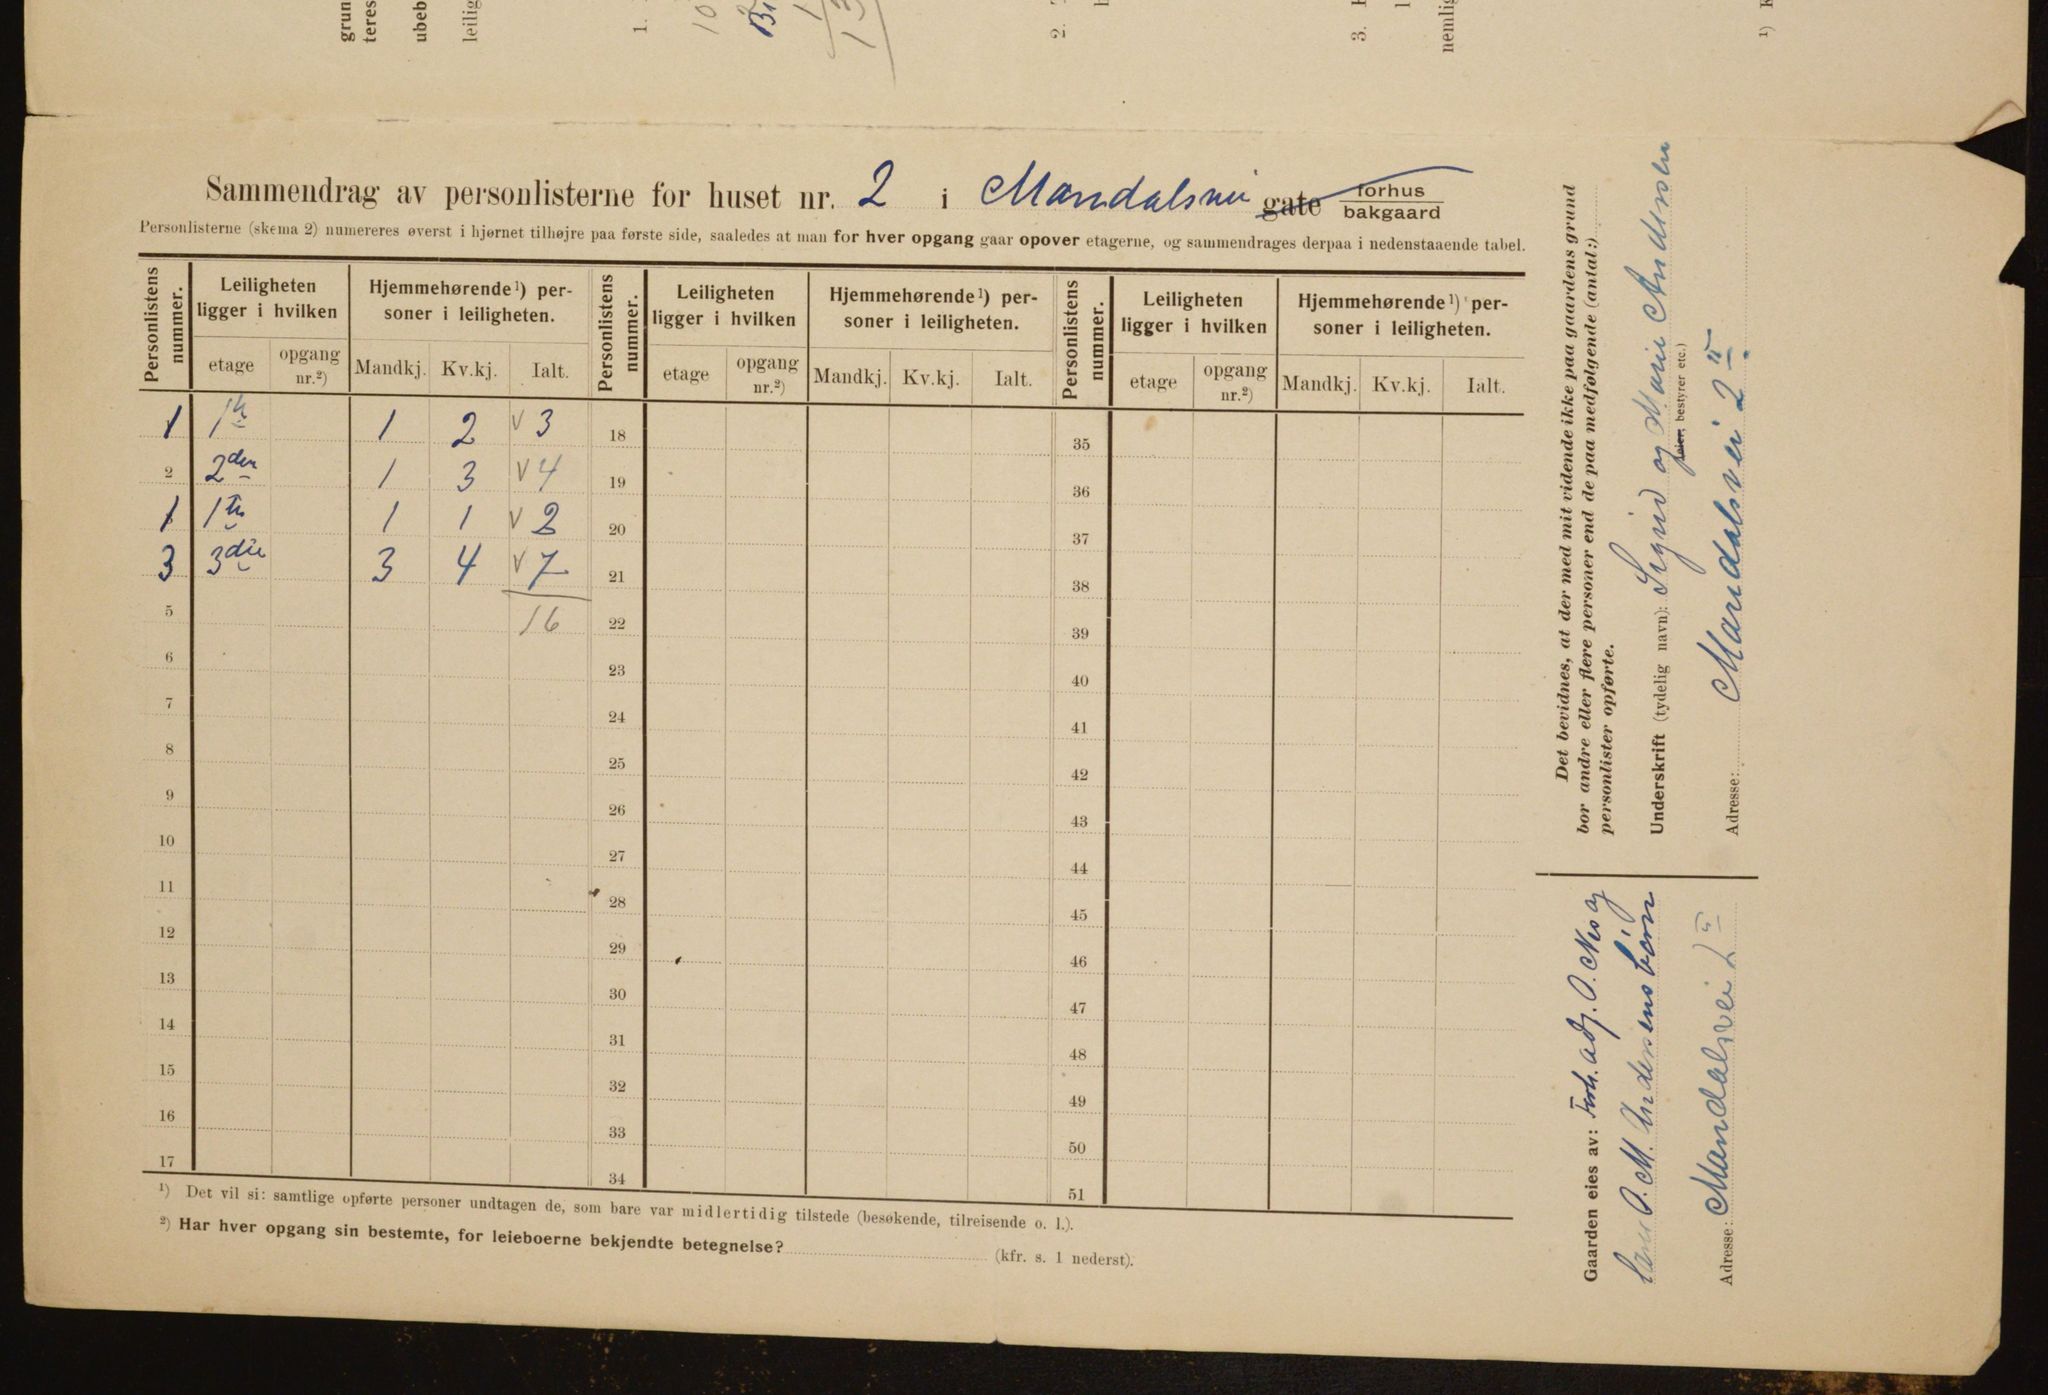 grun
teres
ubeb
leilig
1.
10
2.
3.
nemlig
1) K
Sammendrag av personlisterne for huset nr. 2 i Mandalsvei gate forhus bakgaard
Personlisterne (skema 2) numereres øverst i hjørnet tilhøjre paa første side, saaledes at man for hver opgang gaar opover etagerne, og sammendrages derpaa i nedenstaaende tabel.
Personlistens nummer. Leiligheten ligger i hvilken Hjemmehørende¹) personer i leiligheten. Personlistens nummer. Leiligheten ligger i hvilken Hjemmehørende¹) personer i leiligheten. Personlistens nummer. Leiligheten ligger i hvilken Hjemmehørende¹) personer i leiligheten.
etage opgang nr.²) Mandkj. Kv.kj. Ialt. etage opgang nr.²) Mandkj. Kv.kj. Ialt. etage opgang nr.²) Mandkj. Kv.kj. Ialt.
1 1ste 1 2 V 3 18 35
2 2den 1 3 V 4 19 36
1 1ste 1 1 V 2 20 37
3 3die 3 4 V 7 21 38
5 16 22 39
6 23 40
7 24 41
8 25 42
9 26 43
10 27 44
11 28 45
12 29 46
13 30 47
14 31 48
15 32 49
16 33 50
17 34 51
¹) Det vil si: samtlige opførte personer undtagen de, som bare var midlertidig tilstede (besøkende, tilreisende o. l.).
²) Har hver opgang sin bestemte, for leieboerne bekjendte betegnelse? (kfr. s. 1 nederst).
Det bevidnes, at der med mit vidende ikke paa gaardens grund
bor andre eller flere personer end de paa medfølgende (antal:)
personlister opførte.
Underskrift (tydelig navn): Sigrid og Marie Andersen
(eier, bestyrer etc.)
Adresse: Mandalsvei 2 II
Gaarden eies av: Forh. adj. O. Næs og
O. M. Andersens børn
Adresse: Mandalsvei 2 II